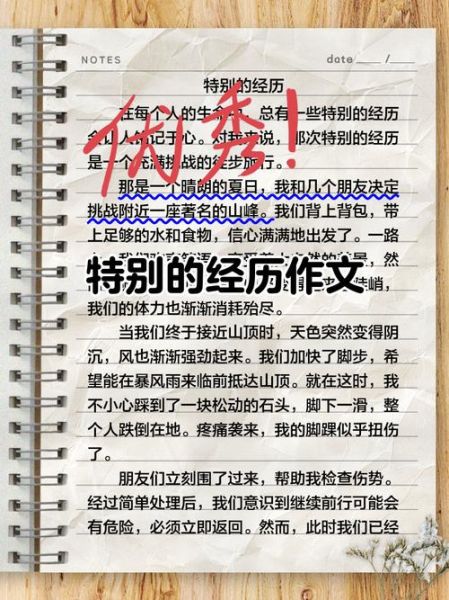 NOTES
date ___ /___
特别的经历
优秀！
在每个人的生命 总有一些特别的经历
会让人铭记于心。对我来说，那次特别的经历
是一个充满挑战的徒步旅行。
那是一个晴朗的夏日，我和几个朋友决定
挑战附近一座著名的山峰。我们背上背包，带
上足够的水和食物，信心满满地出发了。一路
然
特别的经历作文
峭，
我们的体力也渐渐消耗殆尽。
当我们终于接近山顶时，天色突然变得阴
沉，风也渐渐强劲起来。我们加快了脚步，希
望能在暴风雨来临前抵达山顶。就在这时，我
不小心踩到了一块松动的石头，脚下一滑，整
个人跌倒在地。疼痛袭来，我的脚踝似乎扭伤
了。
朋友们立刻围了过来，帮助我检查伤势。
经过简单处理后，我们意识到继续前行可能会
有危险，必须立即返回。然而，此时我们已经